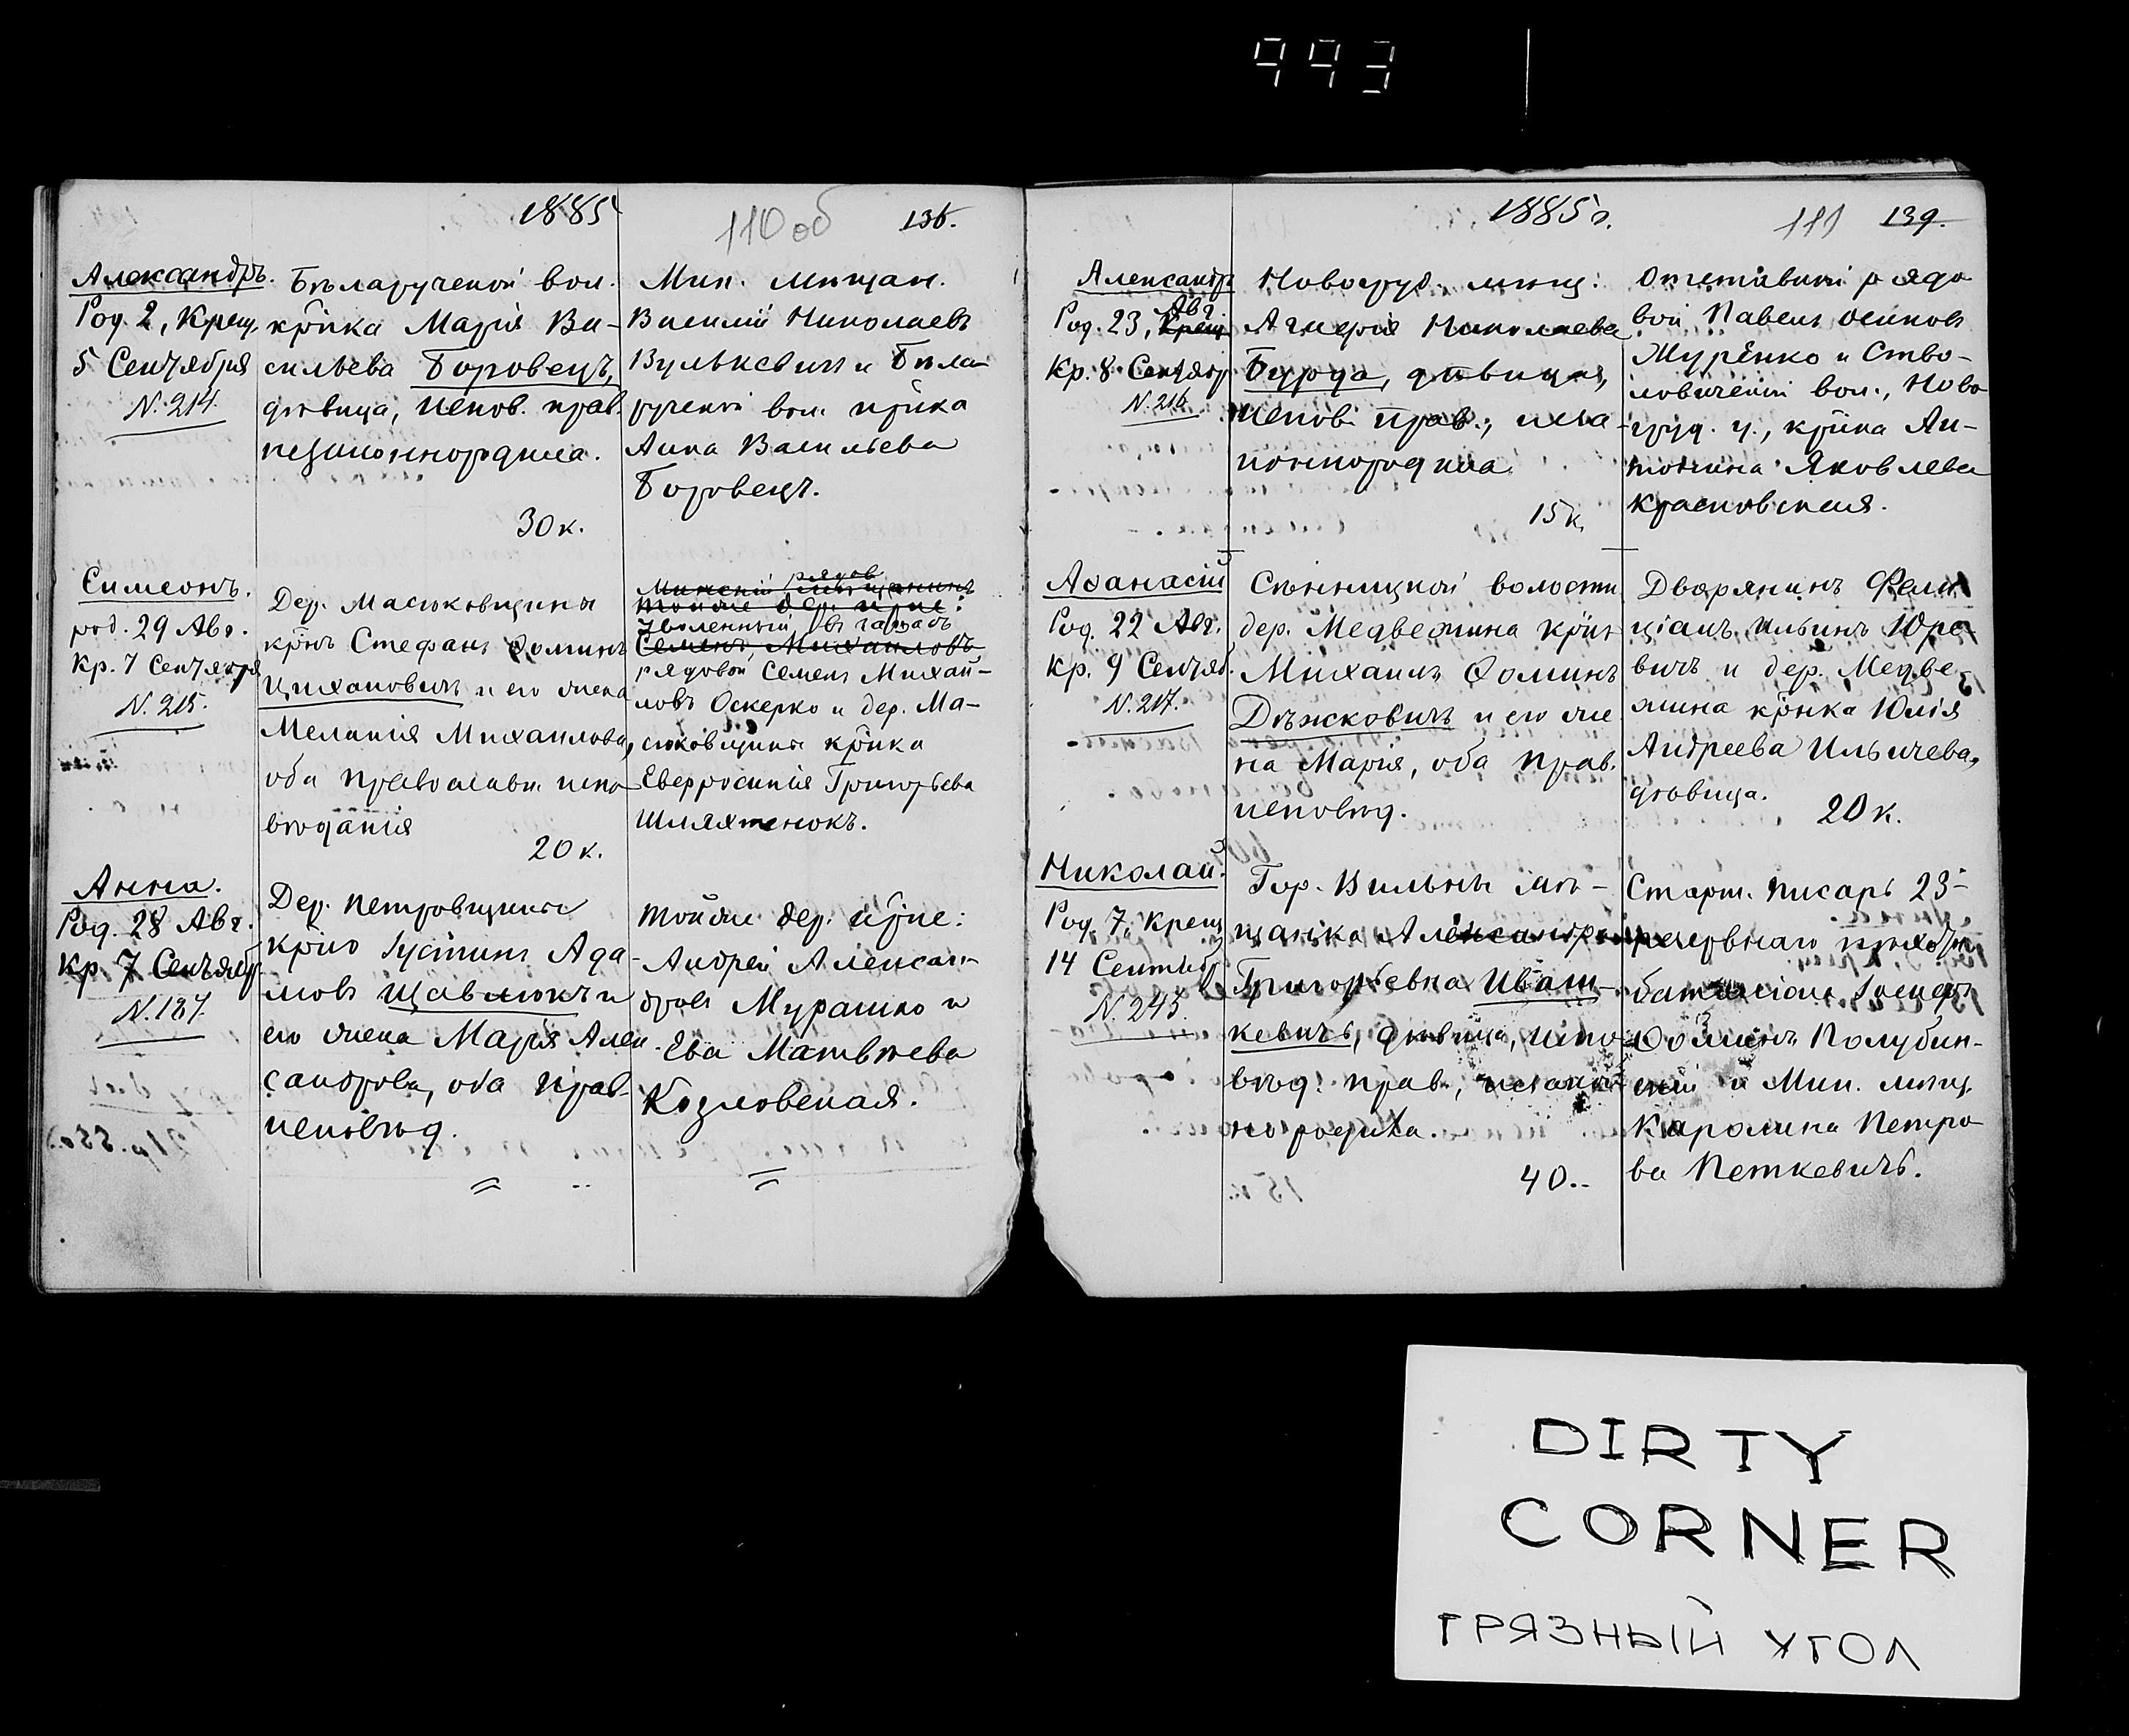 993
1885
110 об 136.
Александръ.
Род. 2, Крещ.
5 Сентября
N. 214.
Бѣларучской вол.
кр-нка Марія Ва-
сильева Боровецъ,
дѣвица, испов. прав.
незаконнородила.
30 к.
Мин. мѣщан.
Василій Николаевъ
Вулькевичъ и Бѣла-
ручской вол. кр-нка
Анна Васильева
Боровецъ.
Симеонъ.
род. 29 Авг.
Кр. 7 Сентября
N. 215.
Дер. Масюковщины
кр-нъ Стефанъ Ѳоминъ
Цихановичъ и его жена
Меланія Михаилова,
оба православн. испо-
вѣданія
20 к.
рядов
Минскій мѣщанинъ
тойже дер. кр-не:
Уволенный въ запасъ
Семенъ Михаиловъ
рядовой Семенъ Михай-
ловъ Оскерко и дер. Ма-
сюковщины кр-нка
Евфросинія Григорьева
Шляхтенокъ.
Анна.
Род. 28 Авг.
Кр. 7 Сентябр
N. 187.
Дер. Петровщины
кр-нъ Іустинъ Ада-
мовъ Щавлюкъ и
его жена Марія Алек-
сандрова, оба прав.
исповѣд.
Тойже дер. кр-не:
Андрей Алексан-
дровъ Мурашко и
Ева Матвѣева
Козловская.
1885 г.
111 139.
Александръ
Авг.
Род. 23, Крещ.
Кр. 8 Сентяб
N. 216
Новогруд. мѣщ:
Николаева
Бурда, дѣвица,
испов. прав., неза-
коннородила.
15 к.
Отставной рядо-
вой Павелъ Осиповъ
Муренко и Ство-
ловичской вол., Ново-
груд. у., кр-нка Ан-
тонина Яковлева
Красновская.
Аѳанасій
Род. 22 Авг.
Кр. 9 Сентяб.
N. 217.
Сѣнницкой волости
дер. Медвежина кр-нъ
Михаилъ Ѳоминъ
Дѣжковичъ и его же-
на Марія, оба прав.
исповѣд.
Дворянинъ Фели-
ціанъ Ильинъ Юре-
вичъ и дер. Медве-
жина кр-нка Юлія
Андреева Ильичева,
дѣвица.
20 к.
Николай.
Род. 7, Крещ
14 Сентяб
N. 243.
Гор. Вильны мѣ-
щанка Александра
Григорьевна Иваш-
кевичъ, дѣвица, испо-
вѣд. прав., незакон-
нородила.
40..
Старш. писарь 23-
резервнаго пѣхотн.
баталіона
Полубин-
скій и Мин. мѣщ.
Каролина Петро-
ва Петкевичъ.
DIRTY
CORNER
ГРЯЗНЫЙ УГОЛ